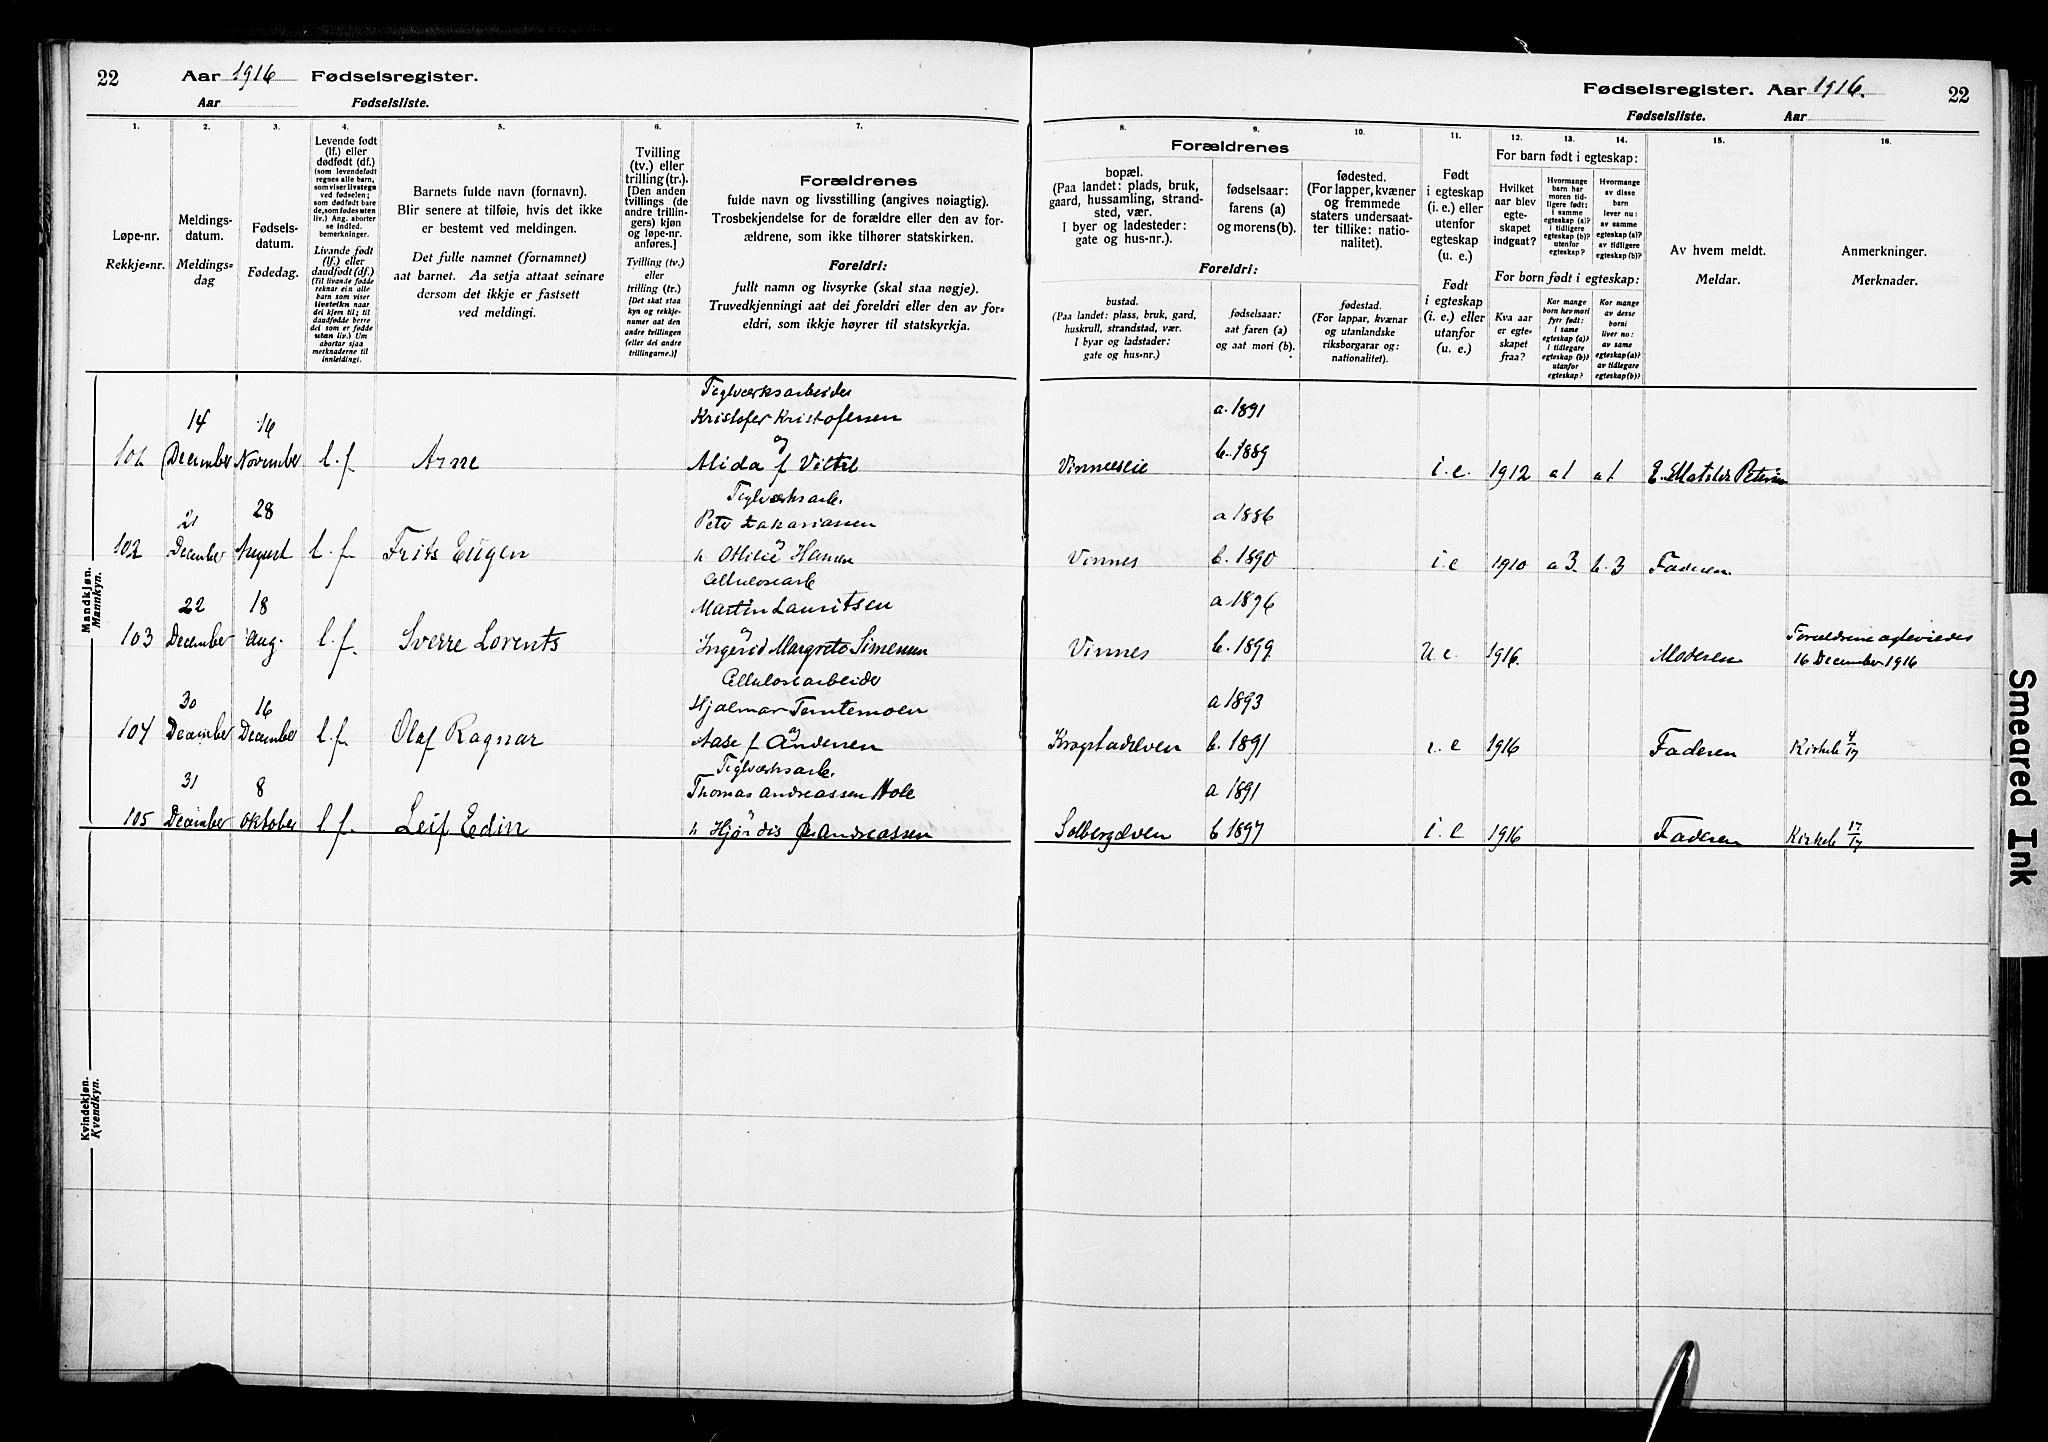 22 Aar 1916 Fødselsregister.
Aar Fødselsliste.
Fødselsregister. Aar 1916. 22
Fødselsliste. Aar
1. 2. 3. 4. 5. 6. 7.
Løpe-nr.
Rekkje-nr.
Meldings-
datum.
Meldings-
dag
Fødsels-
datum.
Fødedag.
Levende født
(lf.) eller
dødfødt (df.)
(som levendefødt
regnes alle barn,
som viser livstegn
ved fødselen;
som dødfødt bare
de, som fødes uten
liv.) Ang. aborter
se indled.
bemerkninger.
Livande født
(lf.) eller
daudfødt (df.)
(Til livande fødde
reknar ein alle
barn som viser
livsteikn naar
dei kjem til; til
daudfødde berre
dei som er fødde
utan liv.) Um
abortar sjaa
merknaderne til
innleidingi.
Barnets fulde navn (fornavn).
Blir senere at tilføie, hvis det ikke
er bestemt ved meldingen.
Det fulle namnet (fornamnet)
aat barnet. Aa setja attaat seinare
dersom det ikkje er fastsett
ved meldingi.
Tvilling
(tv.) eller
trilling (tr.).
[Den anden
tvillings (de
andre trillin-
gers) kjøn
og løpe-nr.
anføres.]
Tvilling (tv.)
eller
trilling (tr.)
[Det skal staa
kyn og rekkje-
numer aat den
andre tvillingen
(eller dei andre
trillingarne.)]
Forældrenes
fulde navn og livsstilling (angives nøiagtig).
Trosbekjendelse for de forældre eller den av for-
ældrene, som ikke tilhører statskirken.
Foreldri:
fullt namn og livsyrke (skal staa nøgje).
Truvedkjenningi aat dei foreldri eller den av for-
eldri, som ikkje høyrer til statskyrkja.
8. 9. 10. 11. 12. 13. 14. 15. 16.
Forældrenes
bopæl.
(Paa landet: plads, bruk,
gaard, hussamling, strand-
sted, vær.
I byer og ladesteder:
gate og hus-nr.).
fødselsaar:
farens (a)
og morens (b).
fødested.
(For lapper, kvæner
og fremmede
staters undersaat-
ter tillike: natio-
nalitet).
Foreldri:
bustad.
(Paa landet: plass, bruk, gard,
huskrull, strandstad, vær.
I byar og ladstader:
gate og hus-nr.)
fødselsaar:
aat faren (a)
og aat mori (b).
fødestad.
(For lappar, kvænar
og utanlandske
riksborgarar og:
nationalitet).
Født
i egteskap
(i. e.) eller
utenfor
egteskap
(u. e.)
Født
i egteskap
(i. e.) eller
utanfor
(u. e.)
For barn født i egteskap:
Hvilket
aar blev
egte-
skapet
indgaat?
Hvormange
barn har
moren tid-
ligere født:
i samme
egteskap (a)?
i tidligere
egteskap (b)?
utenfor
egteskap?
Hvormange
av disse
barn
lever nu:
av samme
egteskap (a)?
av tidligere
egteskap (b)?
For born født i egteskap:
Kva aar
er egte-
skapet
fraa?
Kor mange
born hev mori
fyrr født:
i same
egteskap (a)?
i tidlegare
egteskap (b)?
utanfor
egteskap?
Kor mange
av desse
borni
liver no:
av same
egteskap (a)?
av tidlegare
egteskap (b)?
Av hvem meldt.
Meldar.
Anmerkninger.
Merknader.
Mandkjøn.
Mannkyn.
Teglverksarbeider
14 16 Kristofer Kristofersen a. 1891
101 December November l.f. Arne og Alida f Viltil Vinneseie b. 1889 i.e. 1912 a 1 a 1 E. Matilde
Teglverksarb.
21 28 Peter Zakariassen a 1886
102 December August l.f. Frits Eugen og h Ottilie Hansen Vinnes b. 1890 i.e 1910 a 3. b. 3 Faderen
Cellulosearb
22 18 Martin Lauritsen a 1896
103 December aug. l.f. Sverre Lorents og Ingerid Margrete Simensen Vinnes b. 1899 U.e. 1916. Moderen Forældrene egteviedes
16 December 1916
Cellulosearbeider
30 16 Hjalmar Tomtemoen a 1893
104 December December l.f. Olaf Ragnar og Aase f Andersen Krogstadelven b. 1891 i.e 1916 Faderen Kirkeb 4/17
Teglverksarb.
31 8 Thomas Andreassen Hole a 1891
105 December Oktober l.f. Leif Edin og h Hjørdis Andreassen Solbergelven b 1897 i.e 1916 Faderen Kirkeb 17/17
Kvindekjøn.
Kvendkyn.
Smeared Ink